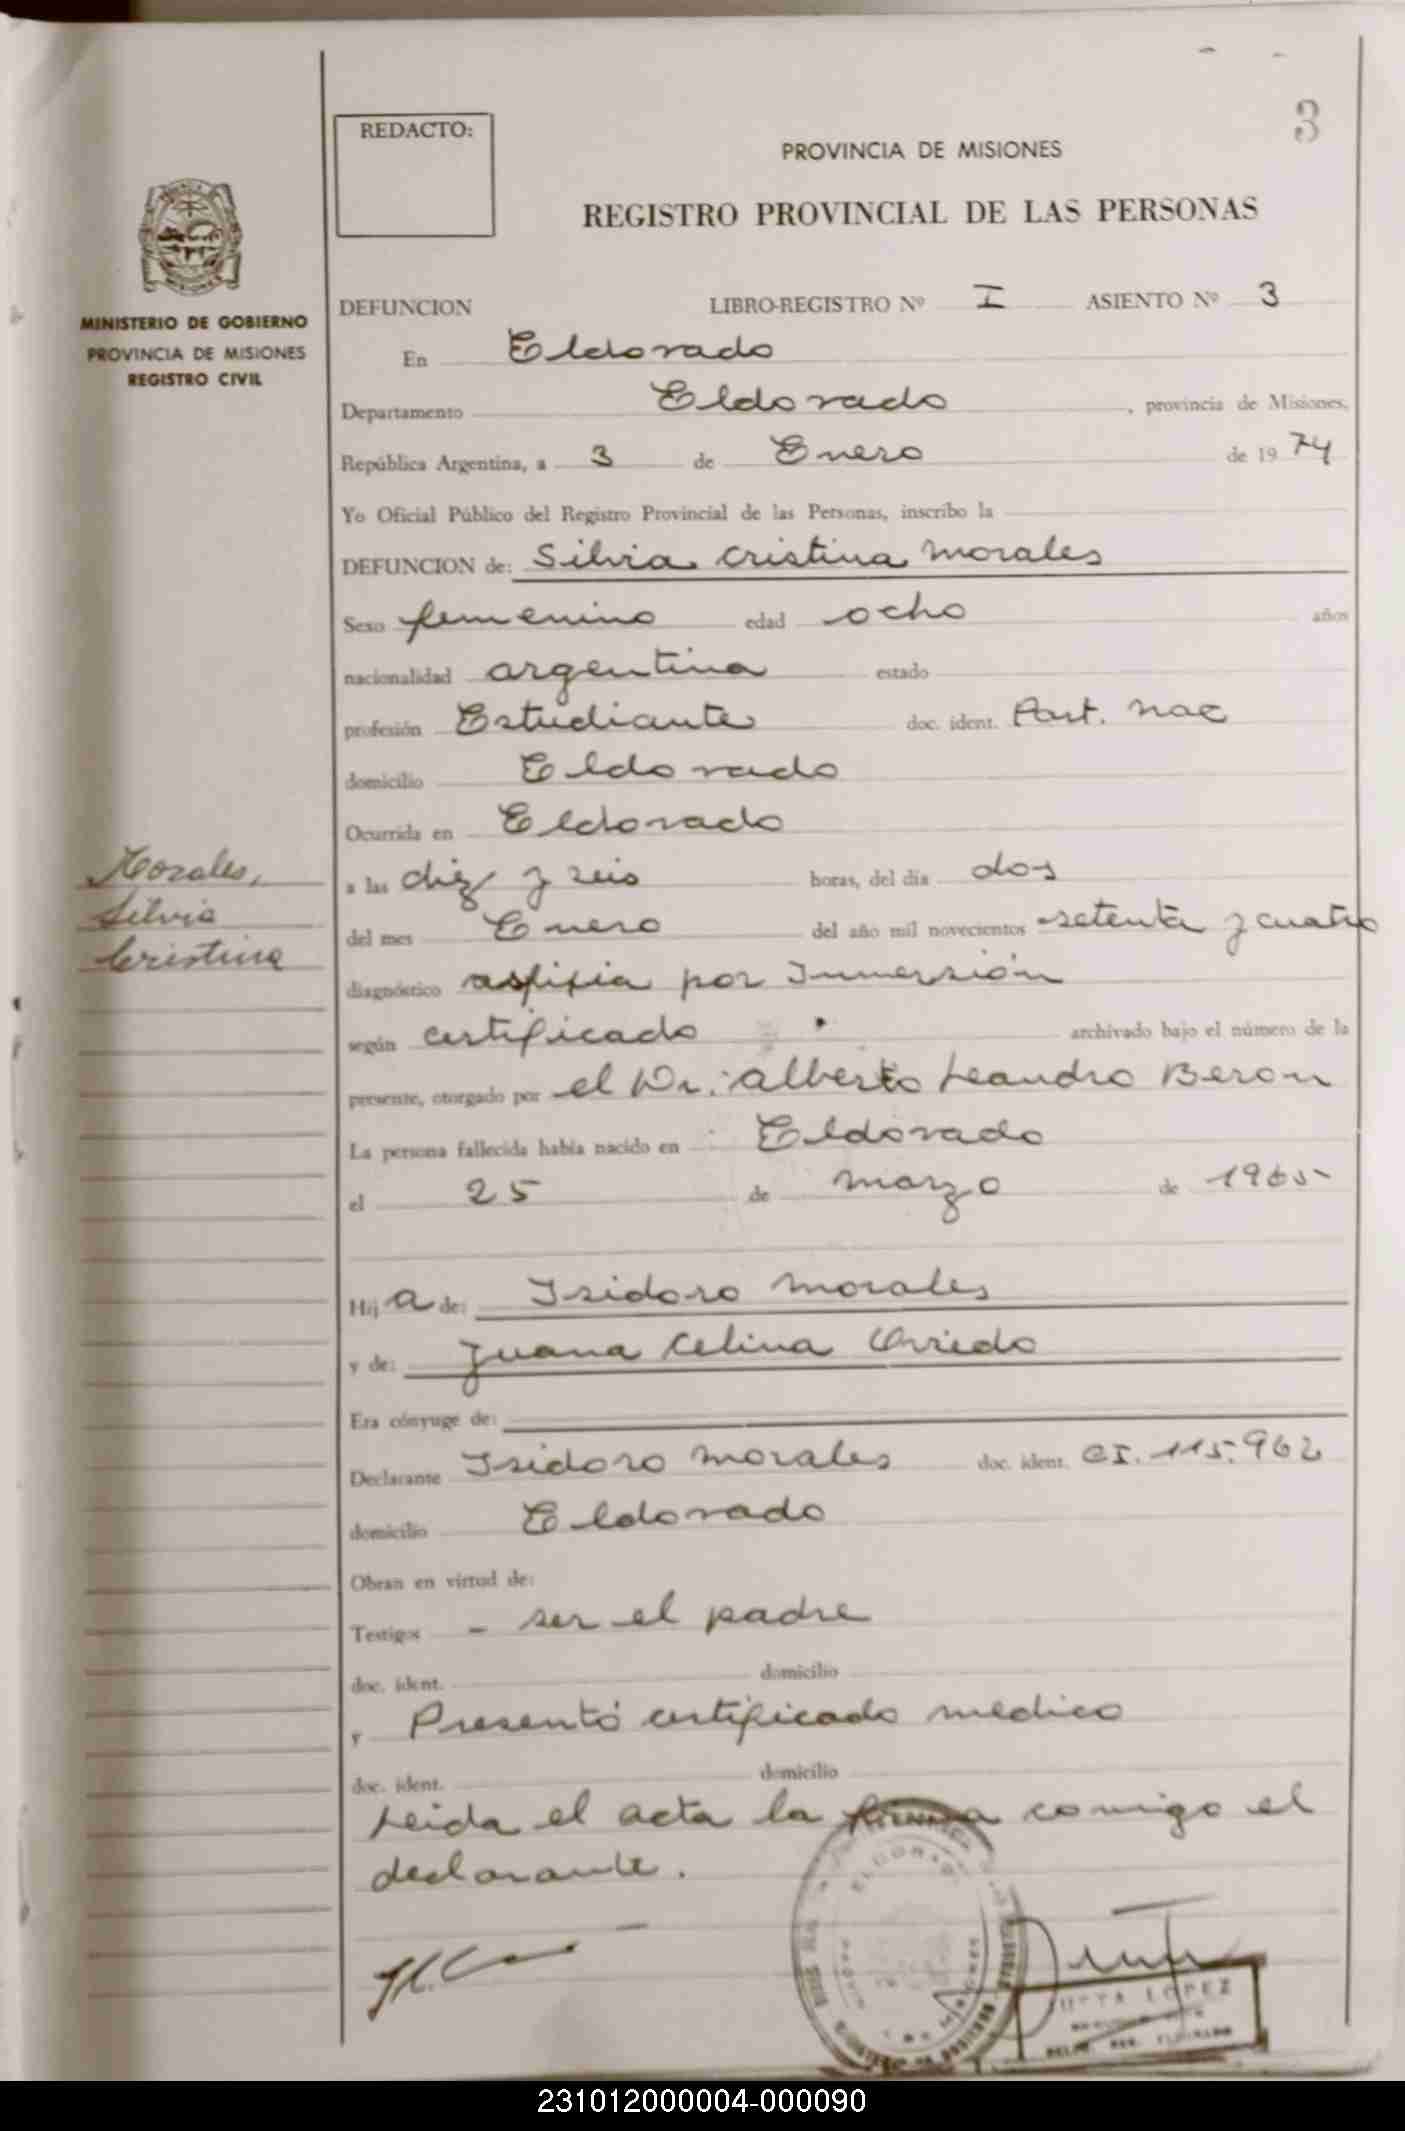 3
REDACTO:
PROVINCIA DE MISIONES
REGISTRO PROVINCIAL DE LAS PERSONAS
MINISTERIO DE GOBIERNO
PROVINCIA DE MISIONES
REGISTRO CIVIL
DEFUNCION LIBRO-REGISTRO Nº I ASIENTO Nº 3
En Eldorado
Departamento Eldorado, provincia de Misiones,
República Argentina, a 3 de Enero de 1974
Yo Oficial Público del Registro Provincial de las Personas, inscribo la
DEFUNCION de: Silvia Cristina Morales
Sexo femenino edad ocho años
nacionalidad argentina estado
profesión Estudiante doc. ident. Part. nac
domicilio Eldorado
Ocurrida en Eldorado
a las diez y seis horas, del día dos
del mes Enero del año mil novecientos setenta y cuatro
diagnóstico asfixia por Inmersión
según certificado archivado bajo el número de la
presente, otorgado por el Dr.: Alberto Leandro Beron
La persona fallecida había nacido en Eldorado
el 25 de marzo de 1965
Hij a de: Isidoro Morales
y de: Juana Celina Oviedo
Era cónyuge de:
Declarante Isidoro Morales doc. ident. CI. 115.962
domicilio Eldorado
Obran en virtud de:
Testigos - ser el padre
doc. ident. domicilio
y Presentó certificado medico
doc. ident. domicilio
Leida el acta la firma comigo el
declarante.
Morales,
Silvia
Cristina
ELDORADO
LOPEZ
231012000004-000090